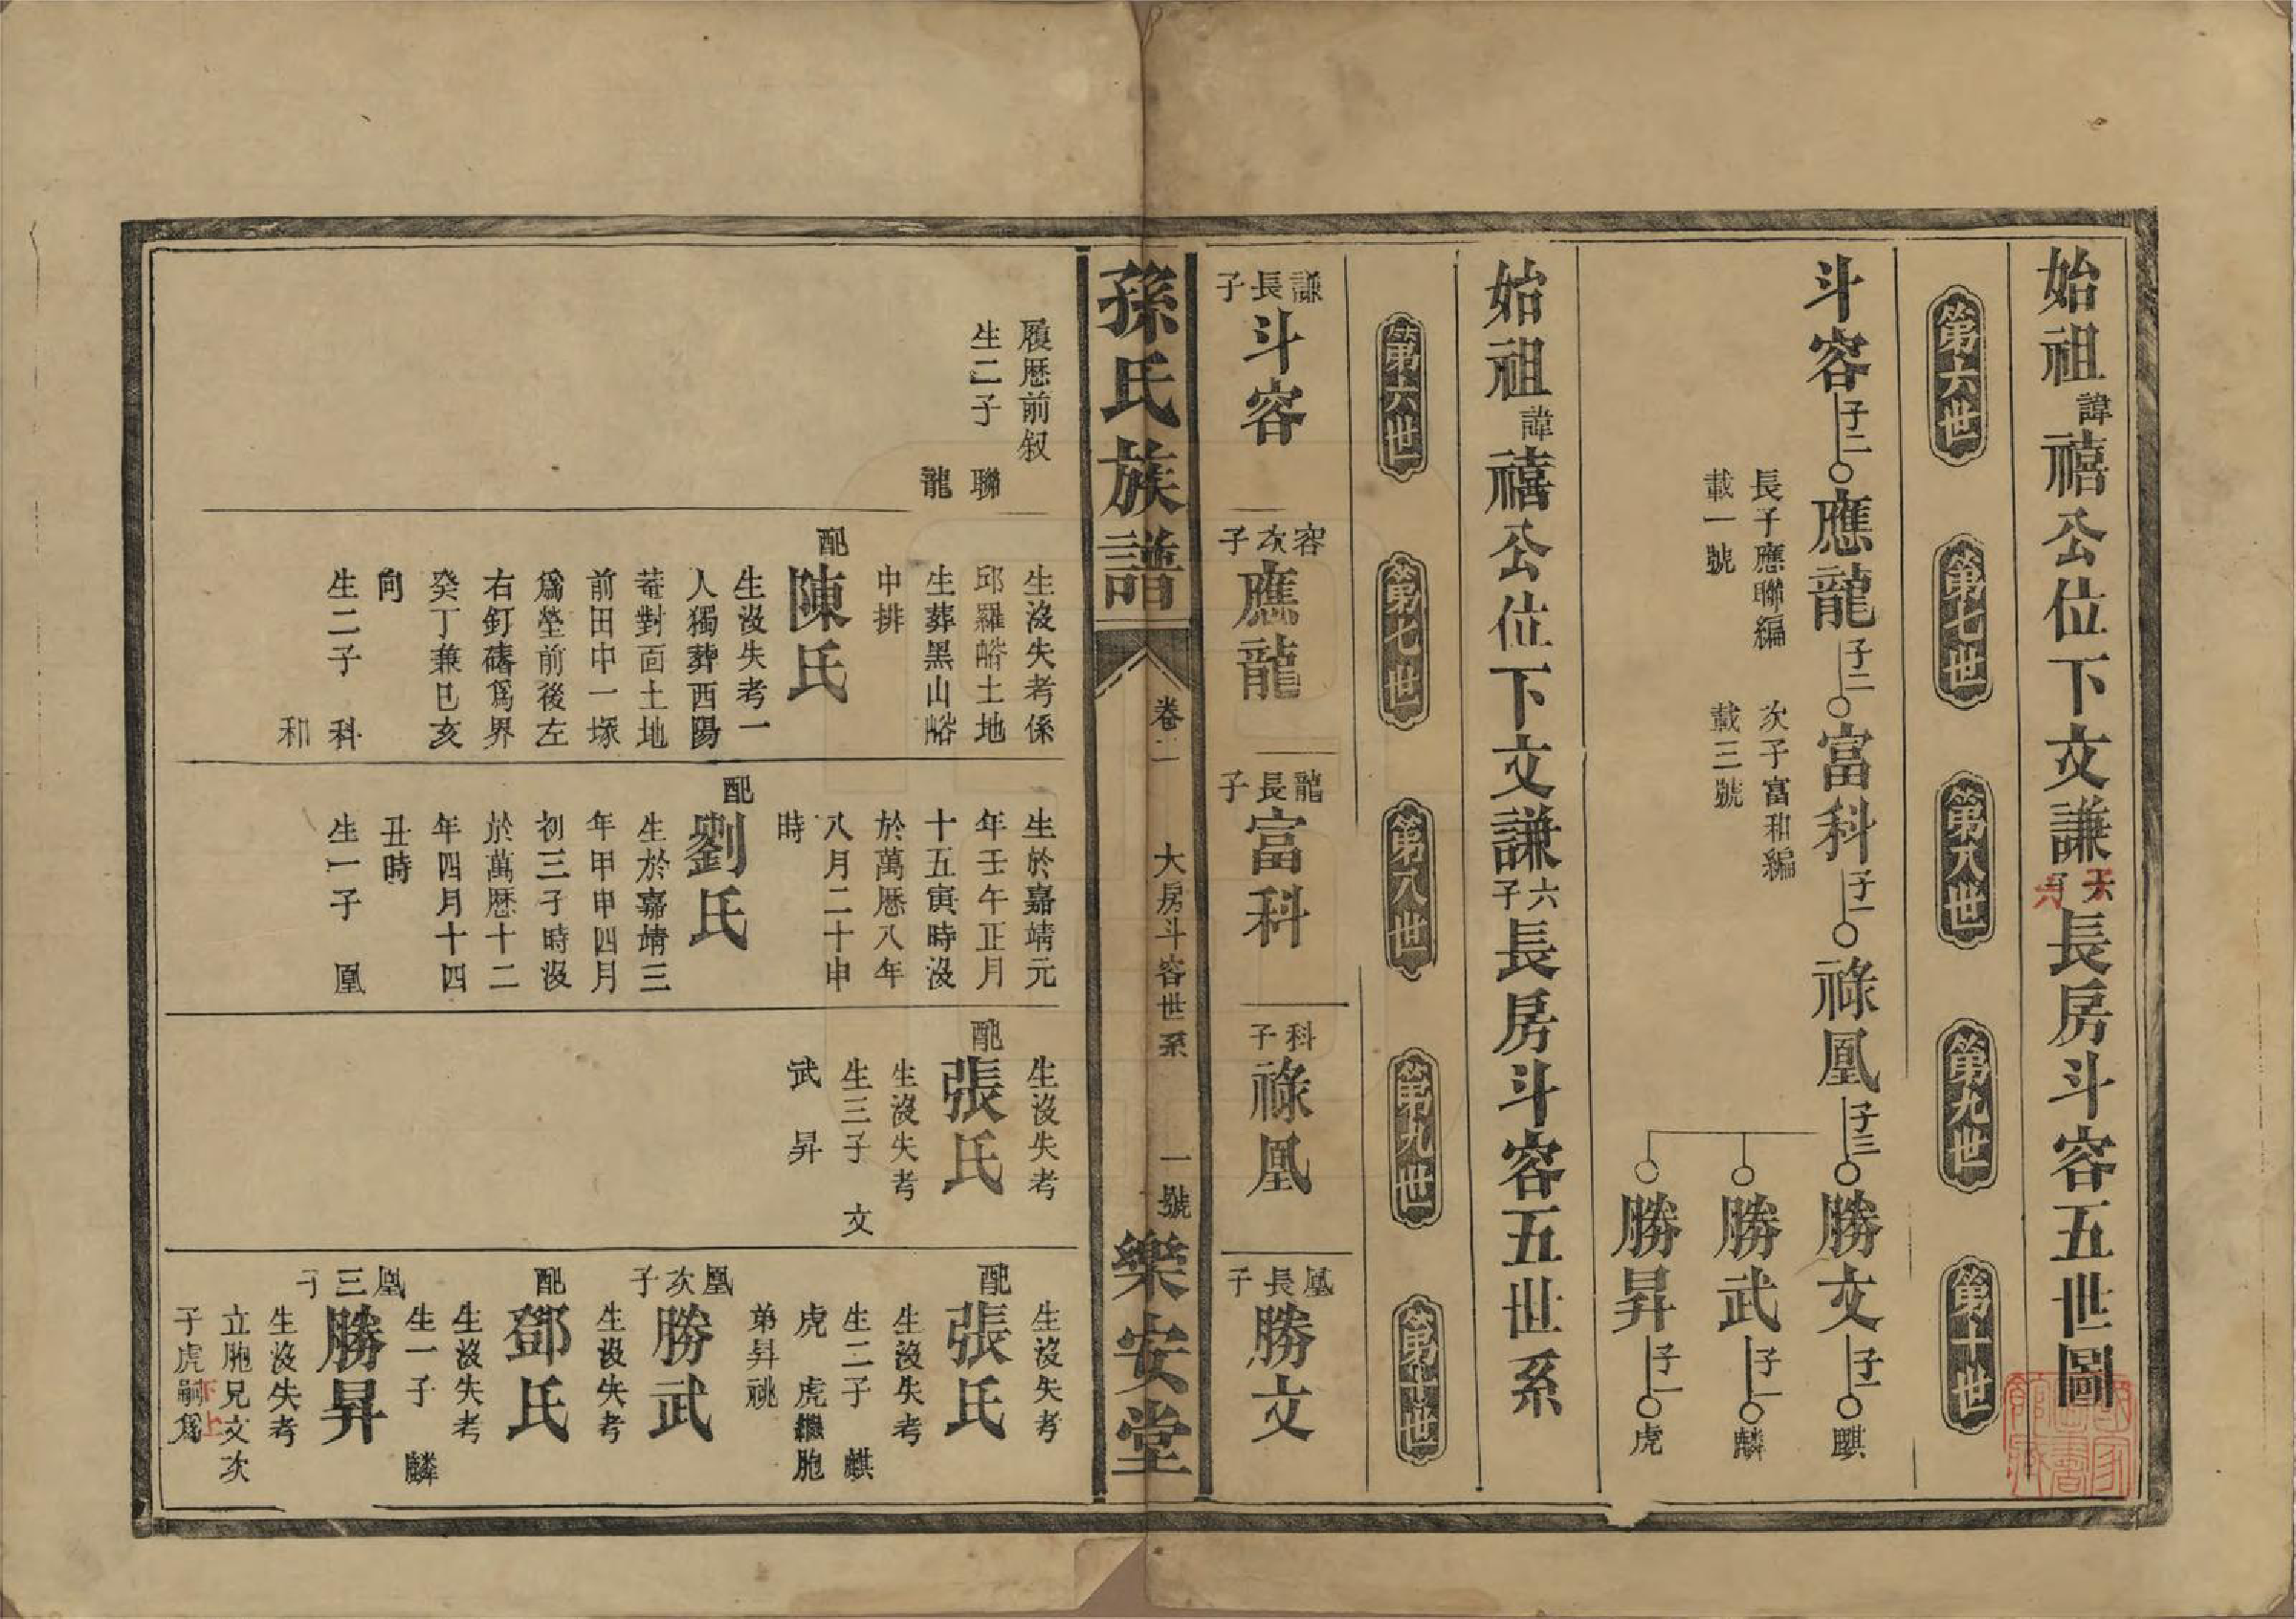 始祖諱禧公位下文謙子六長房斗容五世圖
第六世 第七世 第八世 第九世 第十世
斗容子二應龍子二富科子一祿凰子三勝文子一麒
勝武子一麟
勝昇子一虎
長子應聯編
載一號
次子富和編
載三號
始祖諱禧公位下文謙六子長房斗容五世系
第六世 第七世 第八世 第九世 第十世
謙長子斗容
容次子應龍
龍長子富科
科子祿凰
凰長子勝文
孫氏族譜 卷一 大房斗容世系 一號 樂安堂
履歷前叙
生二子 聯
龍
生沒失考係
邱羅峪土地
生葬黑山峪
中排
配陳氏
生沒失考一
人獨葬西陽
菴對面土地
前田中一塚
爲塋前後左
右釘磚爲界
癸丁兼巳亥
向
生二子 科
和
生於嘉靖元
年壬午正月
十五寅時沒
於萬歷八年
八月二十申
時
配劉氏
生於嘉靖三
年甲申四月
初三子時沒
於萬歷十二
年四月十四
丑時
生一子 凰
生沒失考
配張氏
生沒失考
生三子 文
武 昇
生沒失考
配張氏
生沒失考
生二子 麒
虎 虎繼胞
弟昇祧
凰次子勝武
生沒失考
配鄧氏
生沒失考
生一子 麟
凰三子勝昇
生沒失考
立胞兄文次
子虎嗣爲